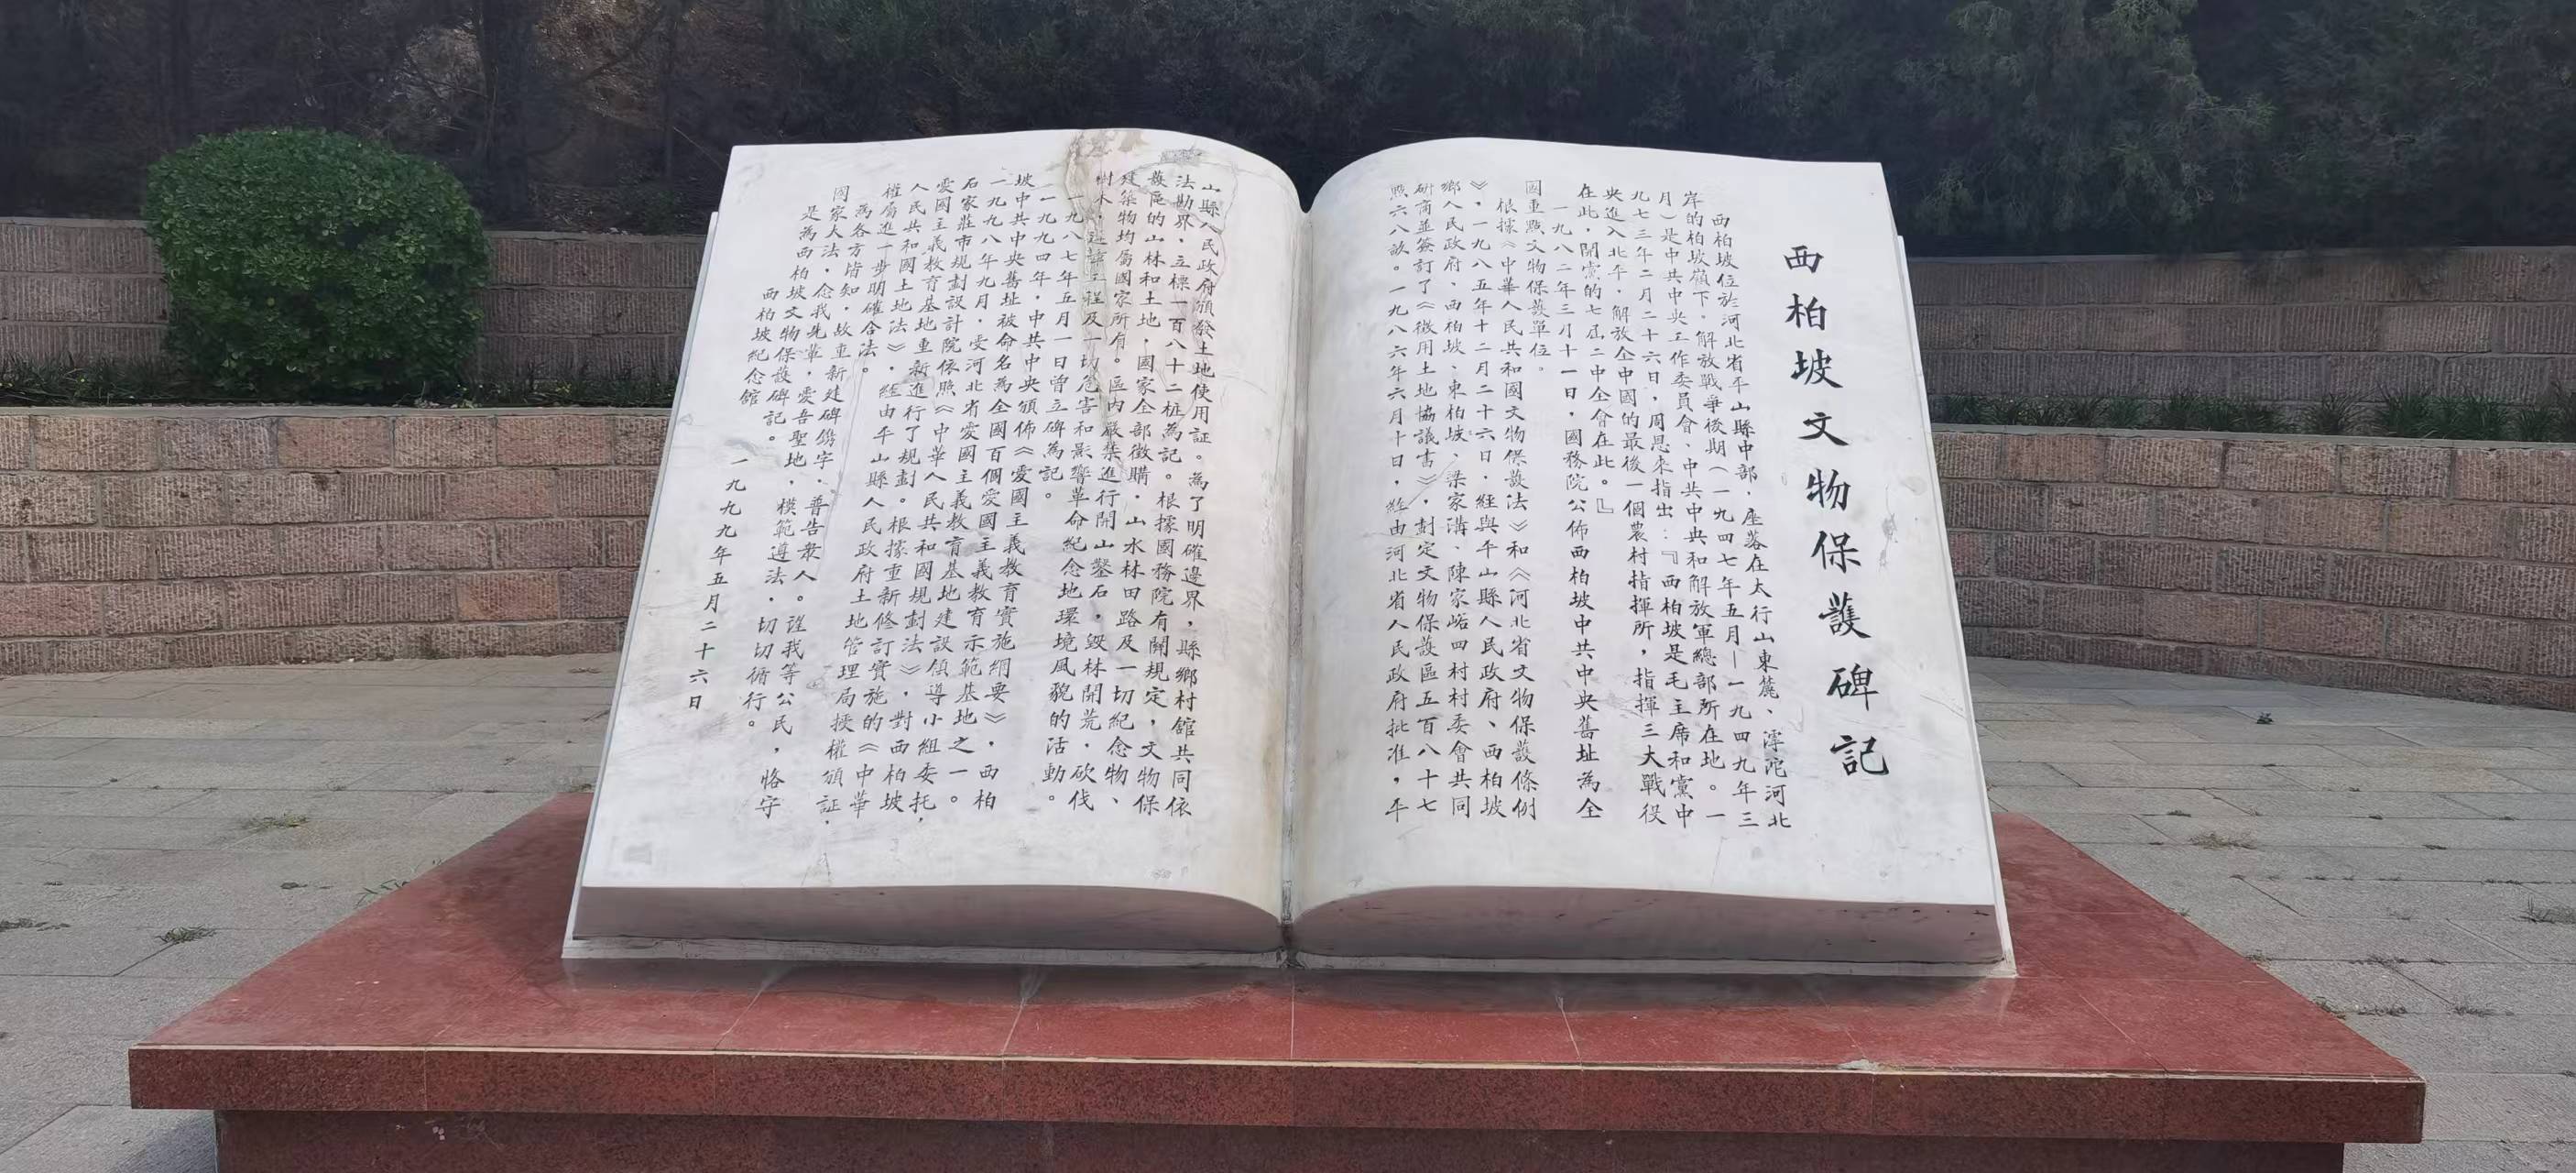 西柏坡文物保護碑記
西柏坡位於河北省平山縣中部，座落在太行山東麓、滹沱河北
岸的柏坡嶺下。解放戰爭後期（一九四七年五月—一九四九年三
月）是中共中央工作委員會、中共中央和解放軍總部所在地。一
九七三年二月二十六日，周恩來指出：『西柏坡是毛主席和黨中
央進入北平，解放全中國的最後一個農村指揮所，指揮三大戰役
在此，開黨的七屆二中全會在此。』
一九八二年三月十一日，國務院公佈西柏坡中共中央舊址為全
國重點文物保護單位。
根據《中華人民共和國文物保護法》和《河北省文物保護條例
》，一九八五年十二月二十六日，經與平山縣人民政府、西柏坡
鄉人民政府、西柏坡、東柏坡、梁家溝、陳家峪四村村委會共同
研商並簽訂了《徵用土地協議書》，劃定文物保護區五百八十七
點六八畝。一九八六年六月十日，經由河北省人民政府批准，平
山縣人民政府頒發土地使用証。為了明確邊界，縣鄉村館共同依
法勘界，立標一百八十二桩為記。根據國務院有關規定，文物保
護區的山林和土地，國家全部徵購，山水林田路及一切紀念物、
建築物均屬國家所有。區內嚴禁進行開山鑿石，毀林開荒，砍伐
樹木，違章工程及一切危害和影響革命紀念地環境風貌的活動。
一九八七年五月一日曾立碑為記。
一九九四年，中共中央頒佈《愛國主義教育實施綱要》，西柏
坡中共中央舊址被命名為全國百個愛國主義教育示範基地之一。
一九九八年九月，受河北省愛國主義教育基地建設領導小組委托，
石家莊市規劃設計院依照《中華人民共和國規劃法》，對西柏坡
愛國主義教育基地重新進行了規劃。根據重新修訂實施的《中華
人民共和國土地法》，經由平山縣人民政府土地管理局授權頒証，
權屬進一步明確合法。
為各方皆知，故重新建碑鐫字，普告衆人。望我等公民，恪守
國家大法，念我先輩，愛吾聖地，模範遵法，切切循行。
是為西柏坡文物保護碑記。
西柏坡紀念館
一九九九年五月二十六日